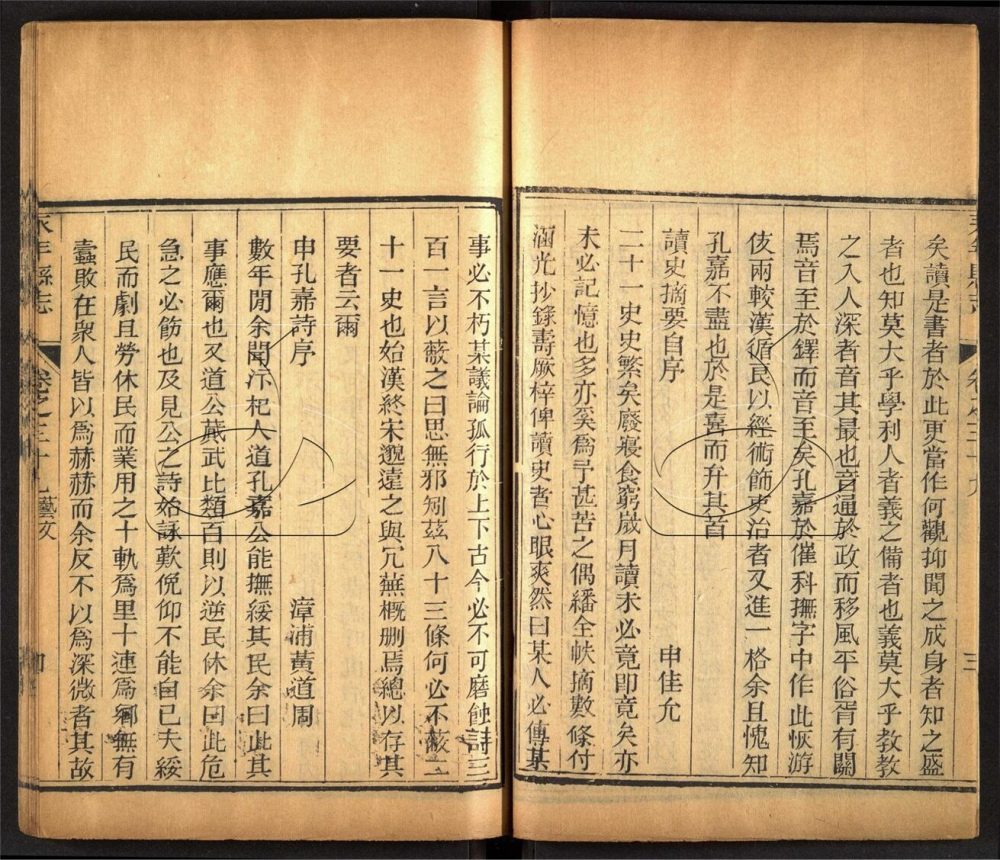 矣讀是書者於此更當作何觀抑聞之成身者知之盛
者也知莫大乎學利人者義之備者也義莫大乎教教
之入人深者音其最也音通於政而移風平俗胥有關
焉音至於鐸而音至矣孔嘉於催科撫字中作此恢游
伎兩較漢循良以經術飾吏治者又進一格余且愧知
孔嘉不盡也於是喜而弁其首
讀史摘要自序
申佳允
二十一史史繁矣廢寢食窮歲月讀未必竟即竟矣亦
未必記憶也多亦奚為予甚苦之偶繙全帙摘數條付
涵光抄錄壽厥梓俾讀史者心眼爽然曰某人必傳某
事必不朽某議論孤行於上下古今必不可磨蝕詩三
百一言以蔽之曰思無邪矧茲八十三條何必不蔽二
十一史也始漢終宋邈遠之與冗蕪概刪焉總以存其
要者云爾
申孔嘉詩序
漳浦黃道周
數年閒余聞汴杞人道孔嘉公能撫綏其民余曰此其
事應爾也又道公蕆武比類百則以逆民休余曰此危
急之必飭也及見公之詩始詠歎俛仰不能自已夫綏
民而劇且勞休民而業用之十軌為里十連為鄉無有
蠹敗在衆人皆以為赫赫而余反不以為深微者其故
永年縣志
卷之三十九
藝文
三